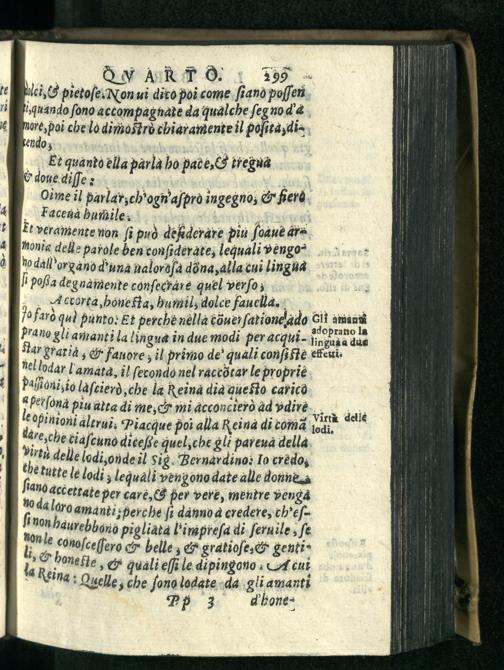 QVARTO. 299
dolci, & pietose. Non ui dico poi come siano possen
ti, quando sono accompagnate da qualche segno d'a
more, poi che lo dimostrò chiaramente il poeta, di-
cendo;
Et quanto ella parla ho pace, & tregua
& doue disse:
Oime il parlar, ch'ogn'aspro ingegno, & fiero
Facena humile.
Et veramente non si può desiderare piu soaue ar-
monia delle parole ben considerate, lequali vengo-
no dall'organo d'una ualorosa dōna, alla cui lingua
si possa degnamente consecrare quel verso;
Accorta, honesta, humil, dolce fauella.
Io farò quì punto: Et perche nella cōuersatione ado
prano gli amanti la lingua in due modi per acqui-
star gratia, & fauore, il primo de' quali consiste
nel lodar l'amata, il secondo nel raccōtar le proprie
passioni, io lascierò, che la Reina dia questo carico
a persona piu alta di me, & mi acconcierò ad vdire
le opinioni altrui. Piacque poi alla Reina di comā
dare, che ciascuno dicesse quel, che gli pareua della
virtù delle lodi, onde il Sig. Bernardino: Io credo,
che tutte le lodi, lequali vengono date alle donne
siano accettate per care, & per vere, mentre venga
no da loro amanti; perche si dānno à credere, ch'es-
si non haurebbono pigliata l'impresa di seruile, se
non le conoscessero & belle, & gratiose, & genti-
li, & honeste, & quali essi le dipingono. A cui
la Reina: Quelle, che sono lodate da gli amanti
Pp 3 d'hone-
Gli amanti
adoprano la
lingua a due
effetti.
Virtù delle
lodi.